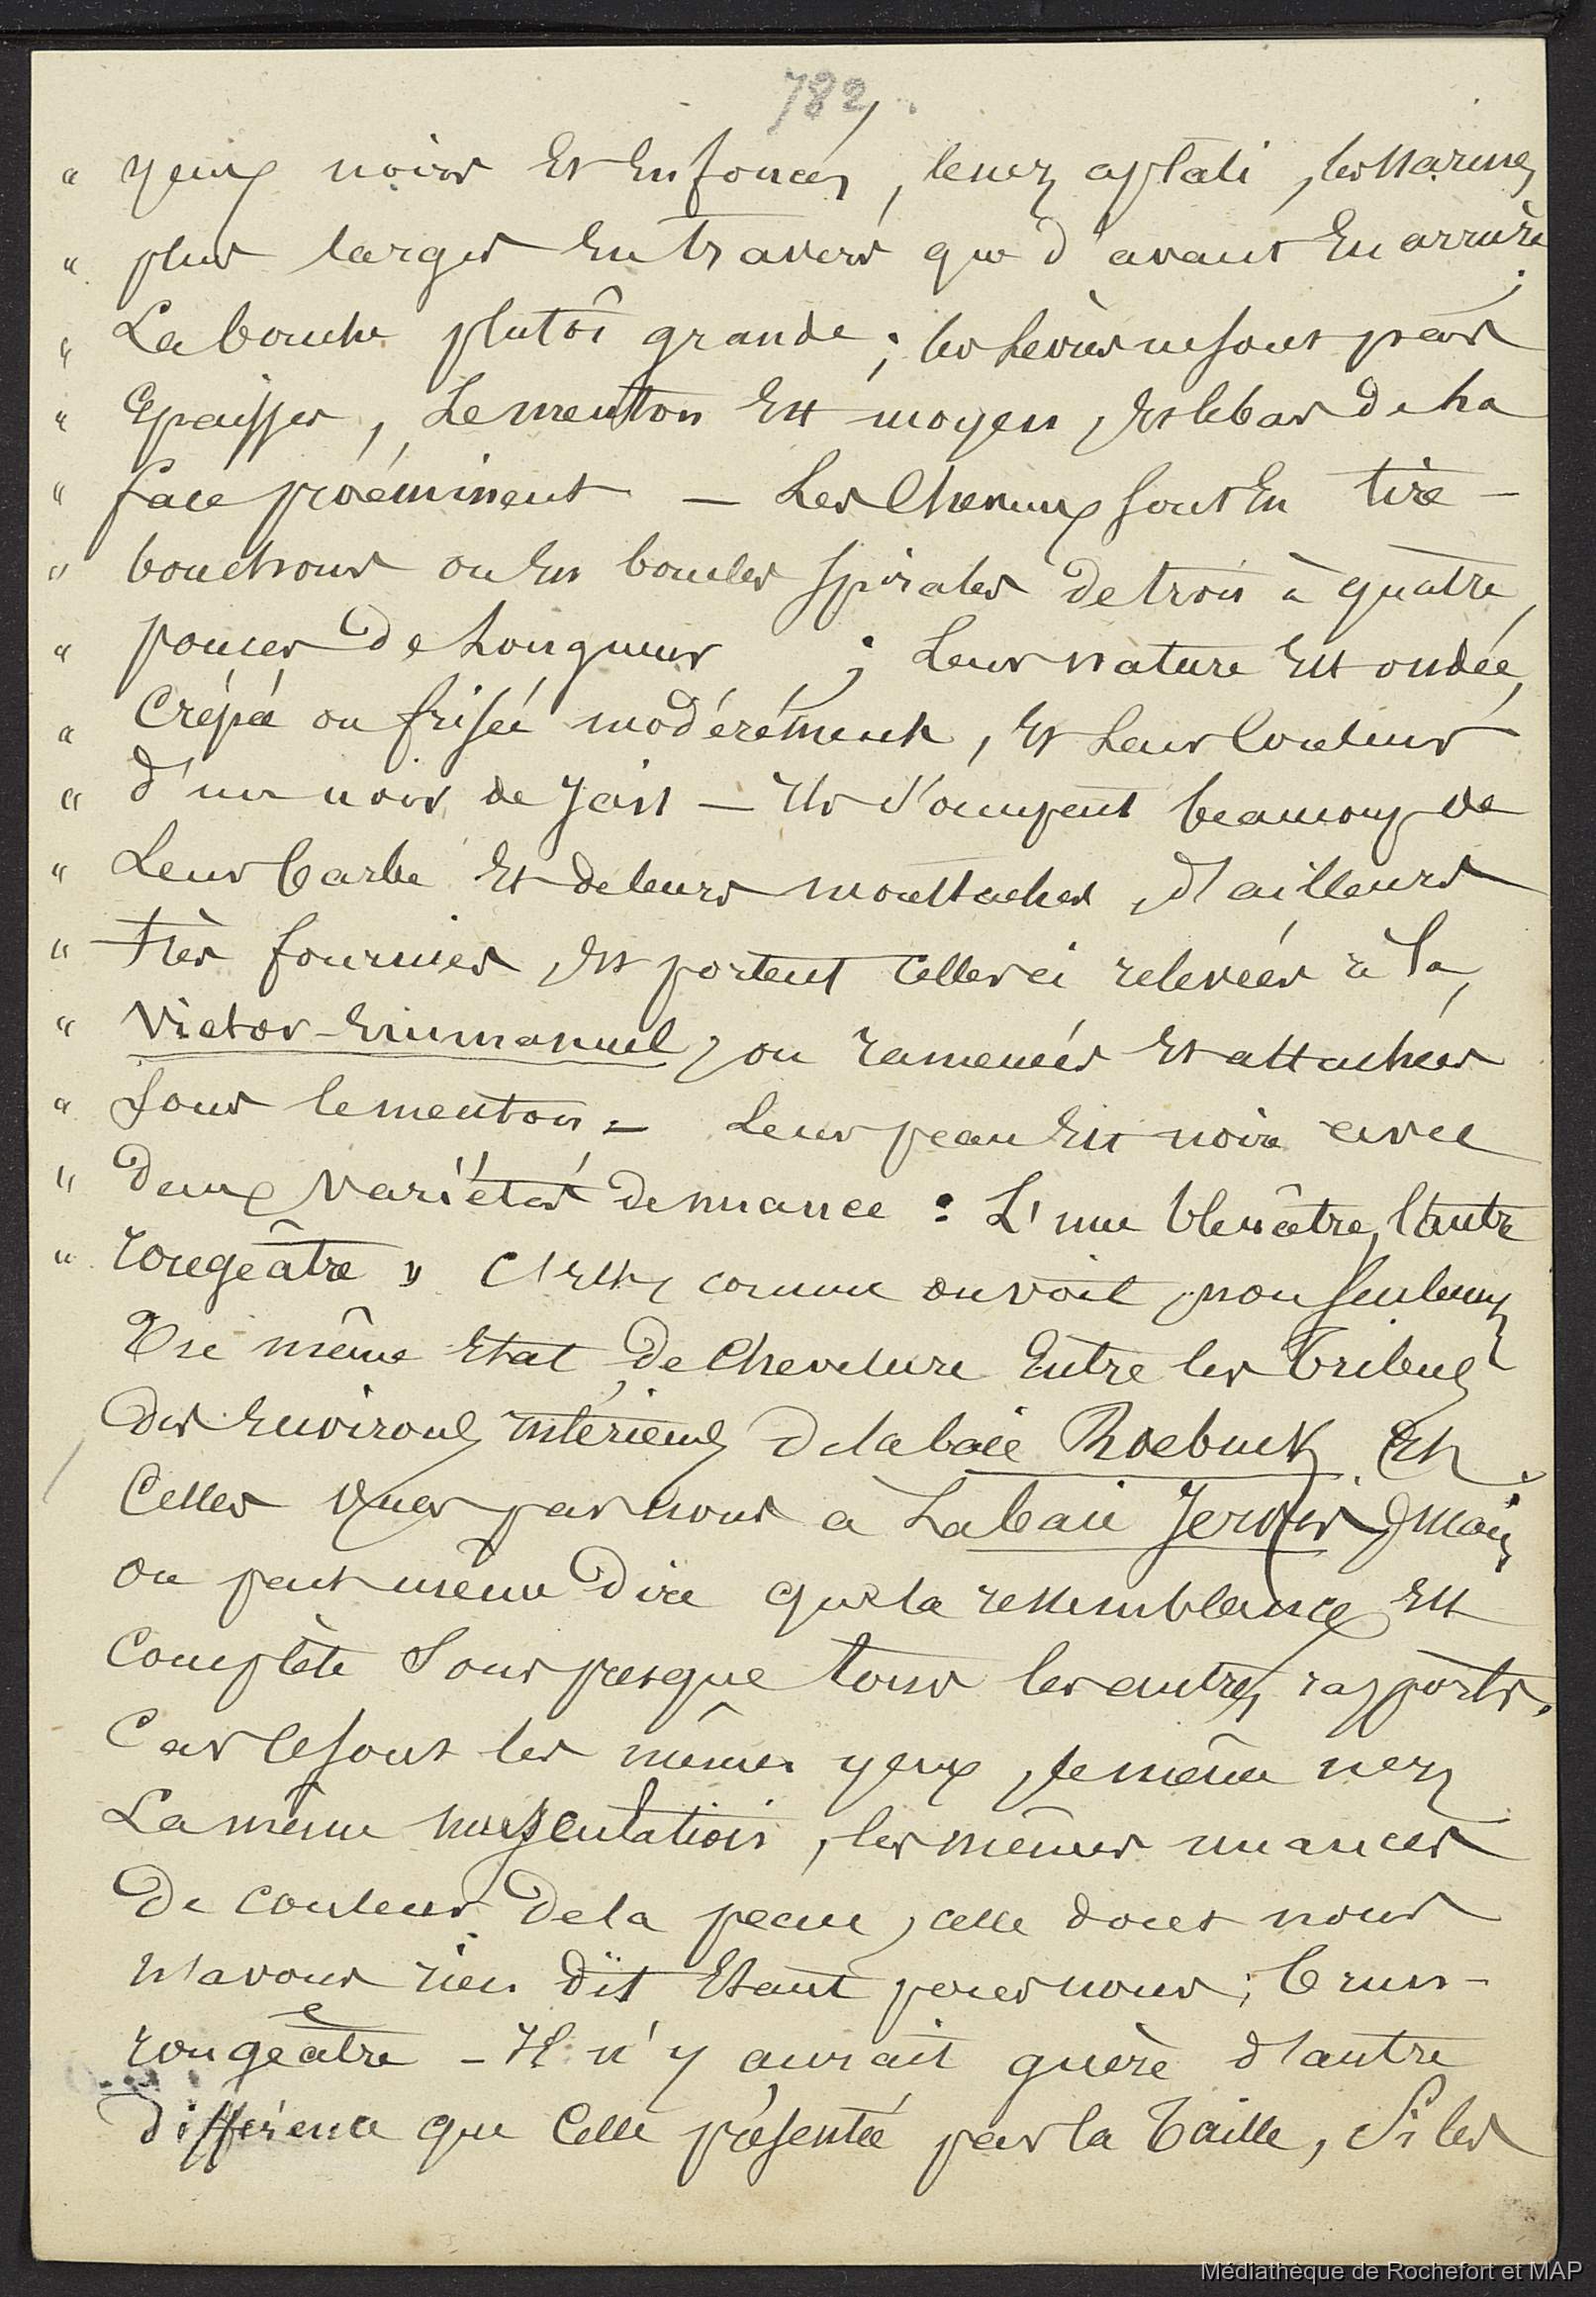 782
" yeux noirs et enfoncés, le nez aplati, les narines
" plus larges en travers que d'avant en arrière;
" La bouche plutôt grande; les lèvres ne sont pas
" Epaisses, Le menton est moyen, et le bas de la
" face proéminent — Les Cheveux sont en tire-
" bouchons ou en boucles spirales de trois à quatre
" pouces de longueur; Leur nature est ondée,
" Crépée ou frisée modérément, et leur Couleur
" d'un noir de Jais — Ils s'occupent beaucoup de
" Leur barbe et de leurs moustaches, d'ailleurs
" très fournies, et portent celles ci relevées à la
" Victor-Emmanuel, ou ramenées et attachées
" sous le menton. — Leur peau est noire avec
" Deux variétés de nuance : L'une bleuâtre, l'autre
" rougeâtre » C'est, comme on voit, non seulement
Un même état de Chevelure entre les tribus
des environs intérieurs de la baie Roebuck et
Celles vues par nous à La baie Jervis, mais
on peut même dire que la ressemblance est
Complète sous presque tous les autres rapports.
Car ce sont les mêmes yeux, le même nez
La même , les mêmes nuances
De couleur de la peau, celle dont nous
n'avons rien dit étant pour nous, brun-
rougeâtre — Il n'y aurait guère d'autre
différence que Celle présentée par la taille, Si les
Médiathèque de Rochefort et MAP